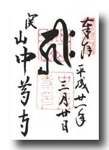 奉拝
平成廿一年
三月廿日
関山
中尊寺